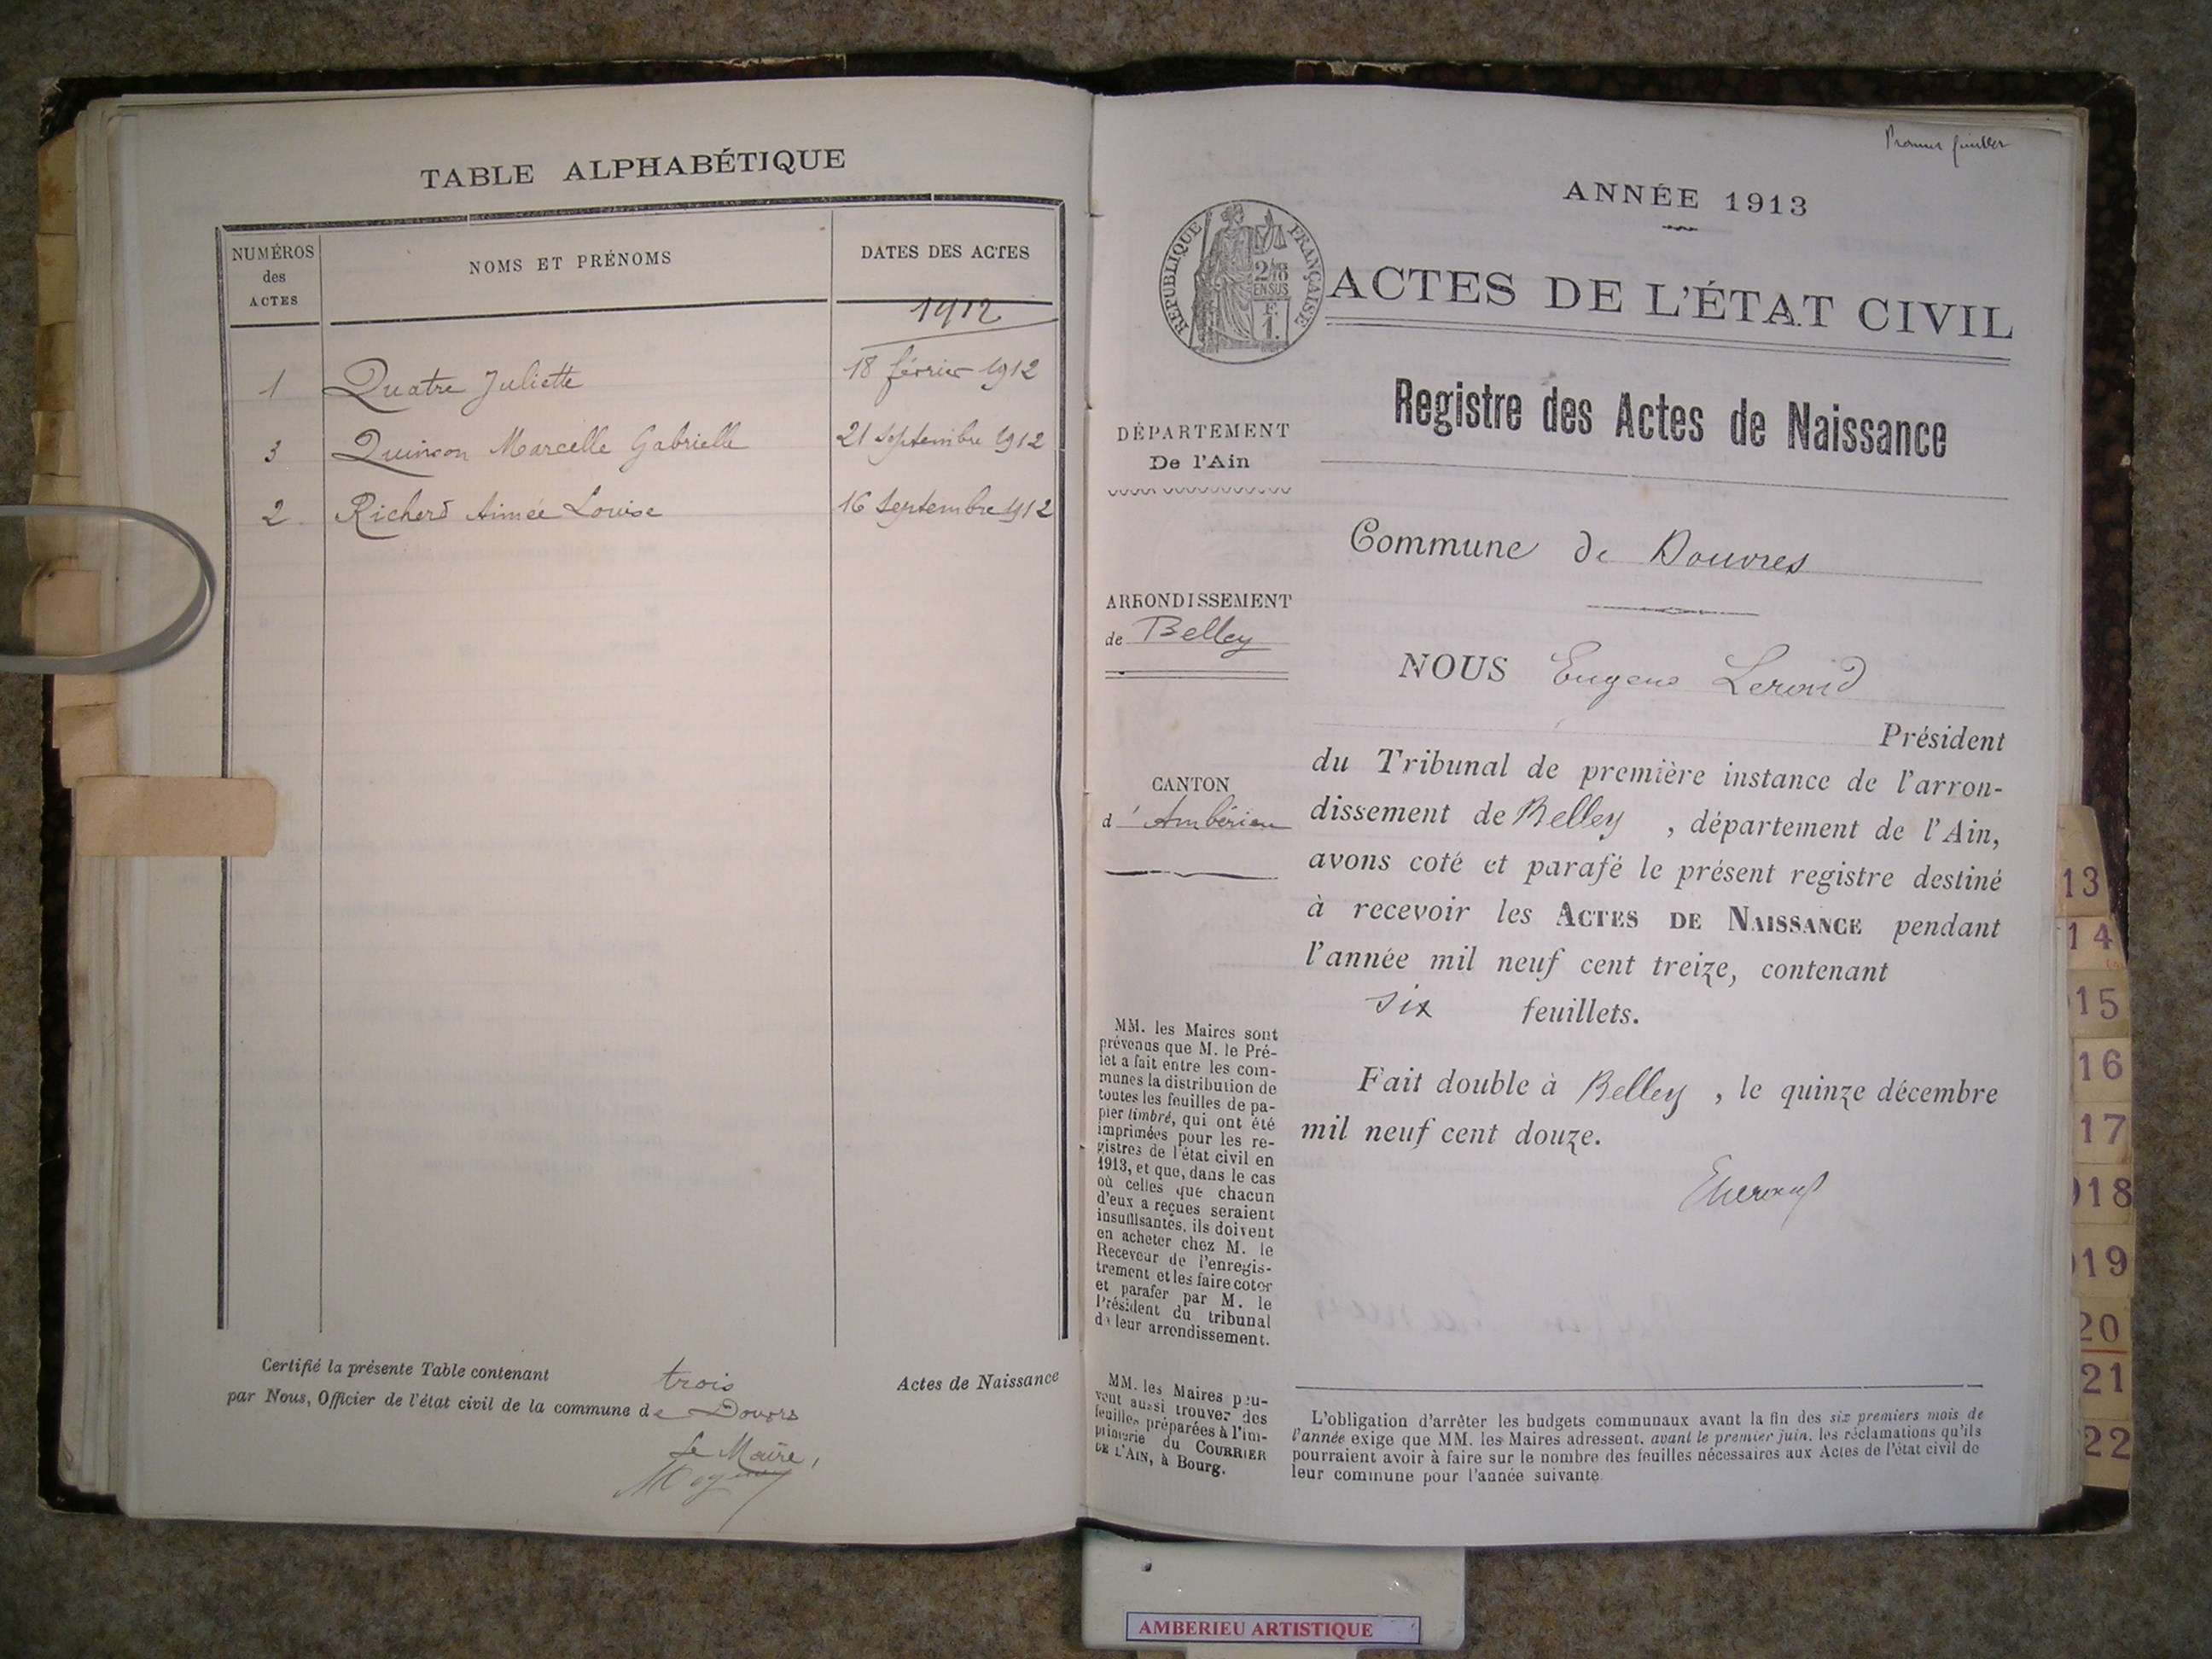 TABLE ALPHABÉTIQUE
NUMÉROS
des
ACTES
NOMS ET PRÉNOMS
DATES DES ACTES
1912
1 Quatre Juliette 18 février 1912
3 Quinson Marcelle Gabrielle 21 Septembre 1912
2 Richerd Aimée Louise 16 Septembre 1912
Certifié la présente Table contenant trois Actes de Naissance
par Nous, Officier de l'état civil de la commune de Douvres
Le Maire,
Premier feuillet
ANNÉE 1913
RÉPUBLIQUE FRANÇAISE
ACTES DE L'ÉTAT CIVIL
Registre des Actes de Naissance
DÉPARTEMENT
De l'Ain
Commune de Douvres
ARRONDISSEMENT
de Belley
NOUS Eugene
Président
du Tribunal de première instance de l'arron-
dissement de Belley , département de l'Ain,
avons coté et parafé le présent registre destiné
à recevoir les ACTES DE NAISSANCE pendant
l'année mil neuf cent treize, contenant
six feuillets.
Fait double à Belley , le quinze décembre
mil neuf cent douze.
CANTON
d'Ambérieu
MM. les Maires sont
prévenus que M. le Pré-
fet a fait entre les com-
munes la distribution de
toutes les feuilles de pa-
pier timbré, qui ont été
imprimées pour les re-
gistres de l'état civil en
1913, et que, dans le cas
où celles que chacun
d'eux a reçues seraient
insuffisantes, ils doivent
en acheter chez M. le
Receveur de l'enregis-
trement et les faire coter
et parafer par M. le
Président du tribunal
de leur arrondissement.
MM. les Maires peu-
vent aussi trouver des
feuilles préparées à l'im-
primerie du COURRIER
DE L'AIN, à Bourg.
L'obligation d'arrêter les budgets communaux avant la fin des six premiers mois de
l'année exige que MM. les Maires adressent, avant le premier juin, les réclamations qu'ils
pourraient avoir à faire sur le nombre des feuilles nécessaires aux Actes de l'état civil de
leur commune pour l'année suivante.
13
14
15
16
17
18
19
20
21
22
AMBERIEU ARTISTIQUE